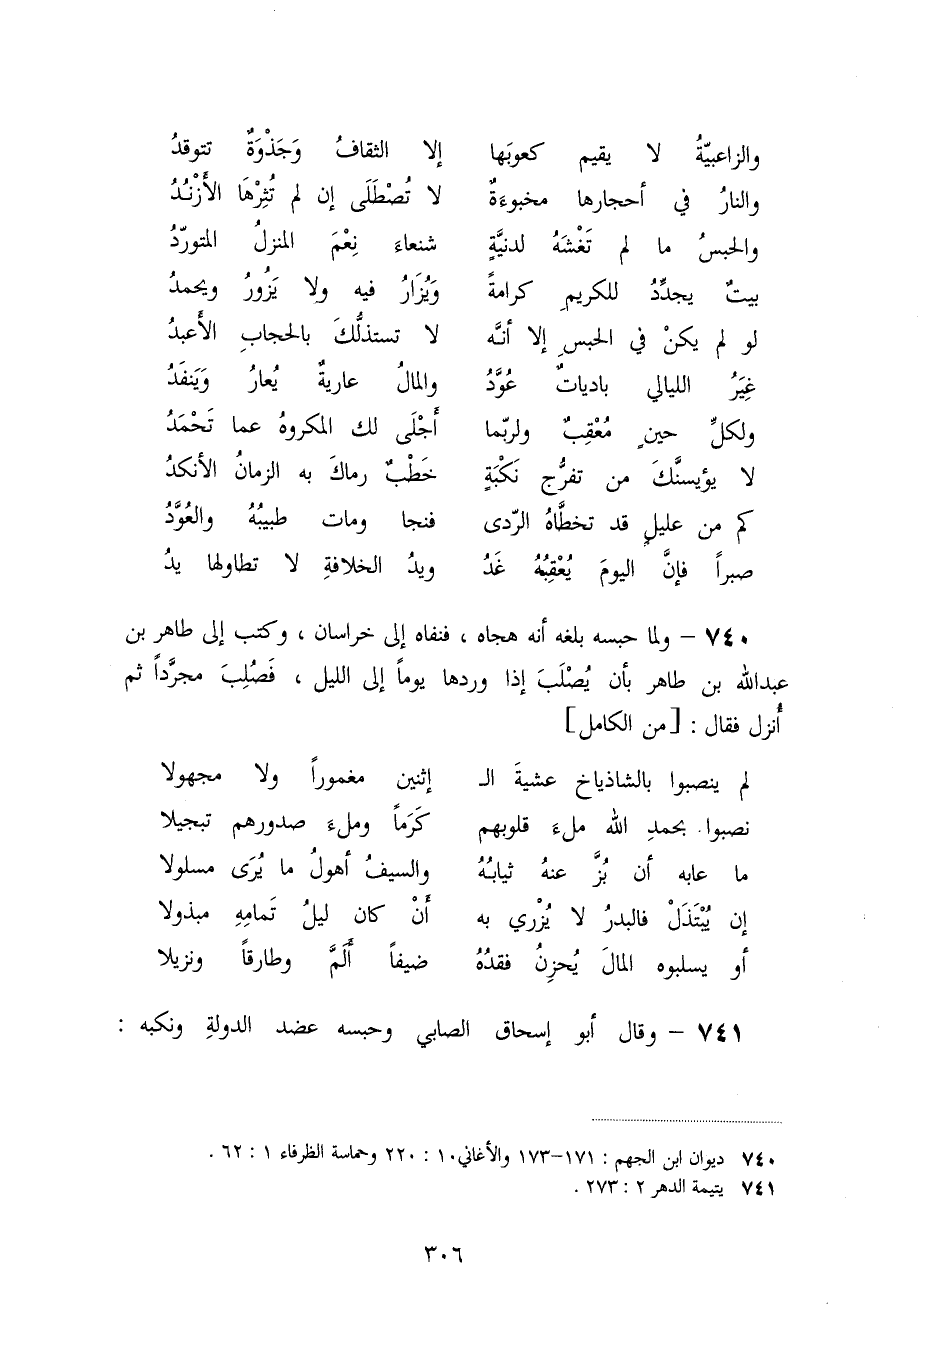 والزاعبيّةُ لا يقيم كعوبَها إلا الثقافُ وَجَذْوَةٌ تتوقدُ
والنارُ في أحجارها مخبوءَةٌ لا تُصْطَلَى إن لم تُثِرْهَا الأَزْنُدُ
والحبسُ ما لم تَغْشَهُ لدنيَّةٍ شنعاءَ نِعْمَ المنزلُ المتورّدُ
بيتٌ يجدِّدُ للكريمِ كرامةً وَيُزَارُ فيه ولا يَزُورُ ويحمدُ
لو لم يكنْ في الحبسِ إلا أنَّه لا تستذلُّكَ بالحجابِ الأَعبدُ
غِيَرُ الليالي بادياتٌ عُوَّدُ والمالُ عاريةٌ يُعارُ وَيَنفَدُ
ولكلِّ حينٍ مُعْقِبٌ ولربّما أَجْلَى لك المكروهُ عما تَحْمَدُ
لا يؤيسنَّكَ من تفرُّج نَكْبَةٍ خَطْبٌ رماكَ به الزمانُ الأنكدُ
كم من عليلٍ قد تخطَّاهُ الرّدى فنجا ومات طبيبُهُ والعُوَّدُ
صبراً فإنَّ اليومَ يُعْقِبُهُ غَدُ ويدُ الخلافةِ لا تطاولها يدُ
٧٤٠ – ولما حبسه بلغه أنه هجاه ، فنفاه إلى خراسان ، وكتب إلى طاهر بن
عبدالله بن طاهر بأن يُصْلَبَ إذا وردها يوماً إلى الليل ، فَصُلِبَ مجرَّداً ثم
أُنزل فقال : [من الكامل]
لم ينصبوا بالشاذياخ عشيةَ الـ إثنين مغموراً ولا مجهولا
نصبوا بحمدِ الله ملءَ قلوبهم كَرَماً وملءَ صدورهم تبجيلا
ما عابه أن بُزَّ عنهُ ثيابُهُ والسيفُ أهولُ ما يُرَى مسلولا
إن يُبْتَذَلْ فالبدرُ لا يُزْري به أَنْ كان ليلُ تَمامِهِ مبذولا
أو يسلبوه المالَ يُحزِنُ فقدُهُ ضيفاً أَلَمَّ وطارقاً ونزيلا
٧٤١ – وقال أبو إسحاق الصابي وحبسه عضد الدولةِ ونكبه :
٧٤٠ ديوان ابن الجهم : ١٧١–١٧٣ والأغاني ١٠ : ٢٢٠ وحماسة الظرفاء ١ : ٦٢ .
٧٤١ يتيمة الدهر ٢ : ٢٧٣ .
٣٠٦